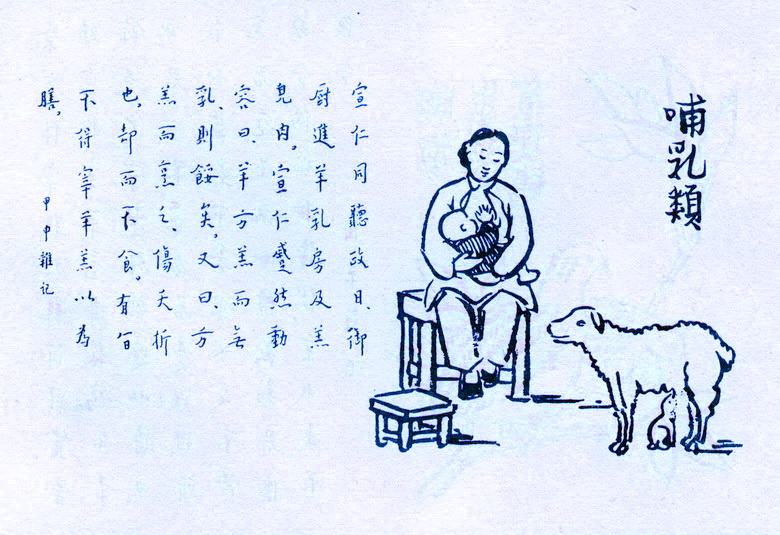 哺乳類
宣仁同聽政日、御
厨進羊乳房及羔
兒肉。宣仁蹙然動
容曰、羊方羔而無
乳、則餒矣。又曰、方
羔而烹之、傷夭折
也。却而不食。有旨
不得宰羊羔以為
膳。
甲申雜记